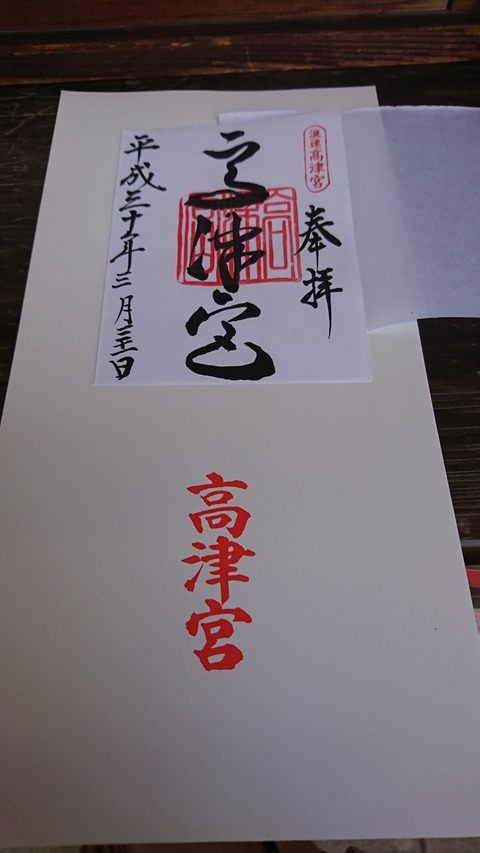 浪速高津宮
奉拝
高津宮
平成三十年三月三十一日
高津宮